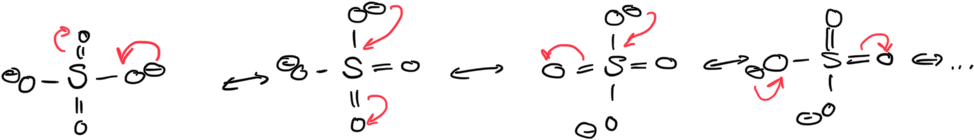 O
⊖O–S–O⊖
O
↔
O⊖
⊖O–S=O
O
↔
O⊖
O=S=O
⊖O
↔
O
⊖O–S=O
⊖O
↔ ...